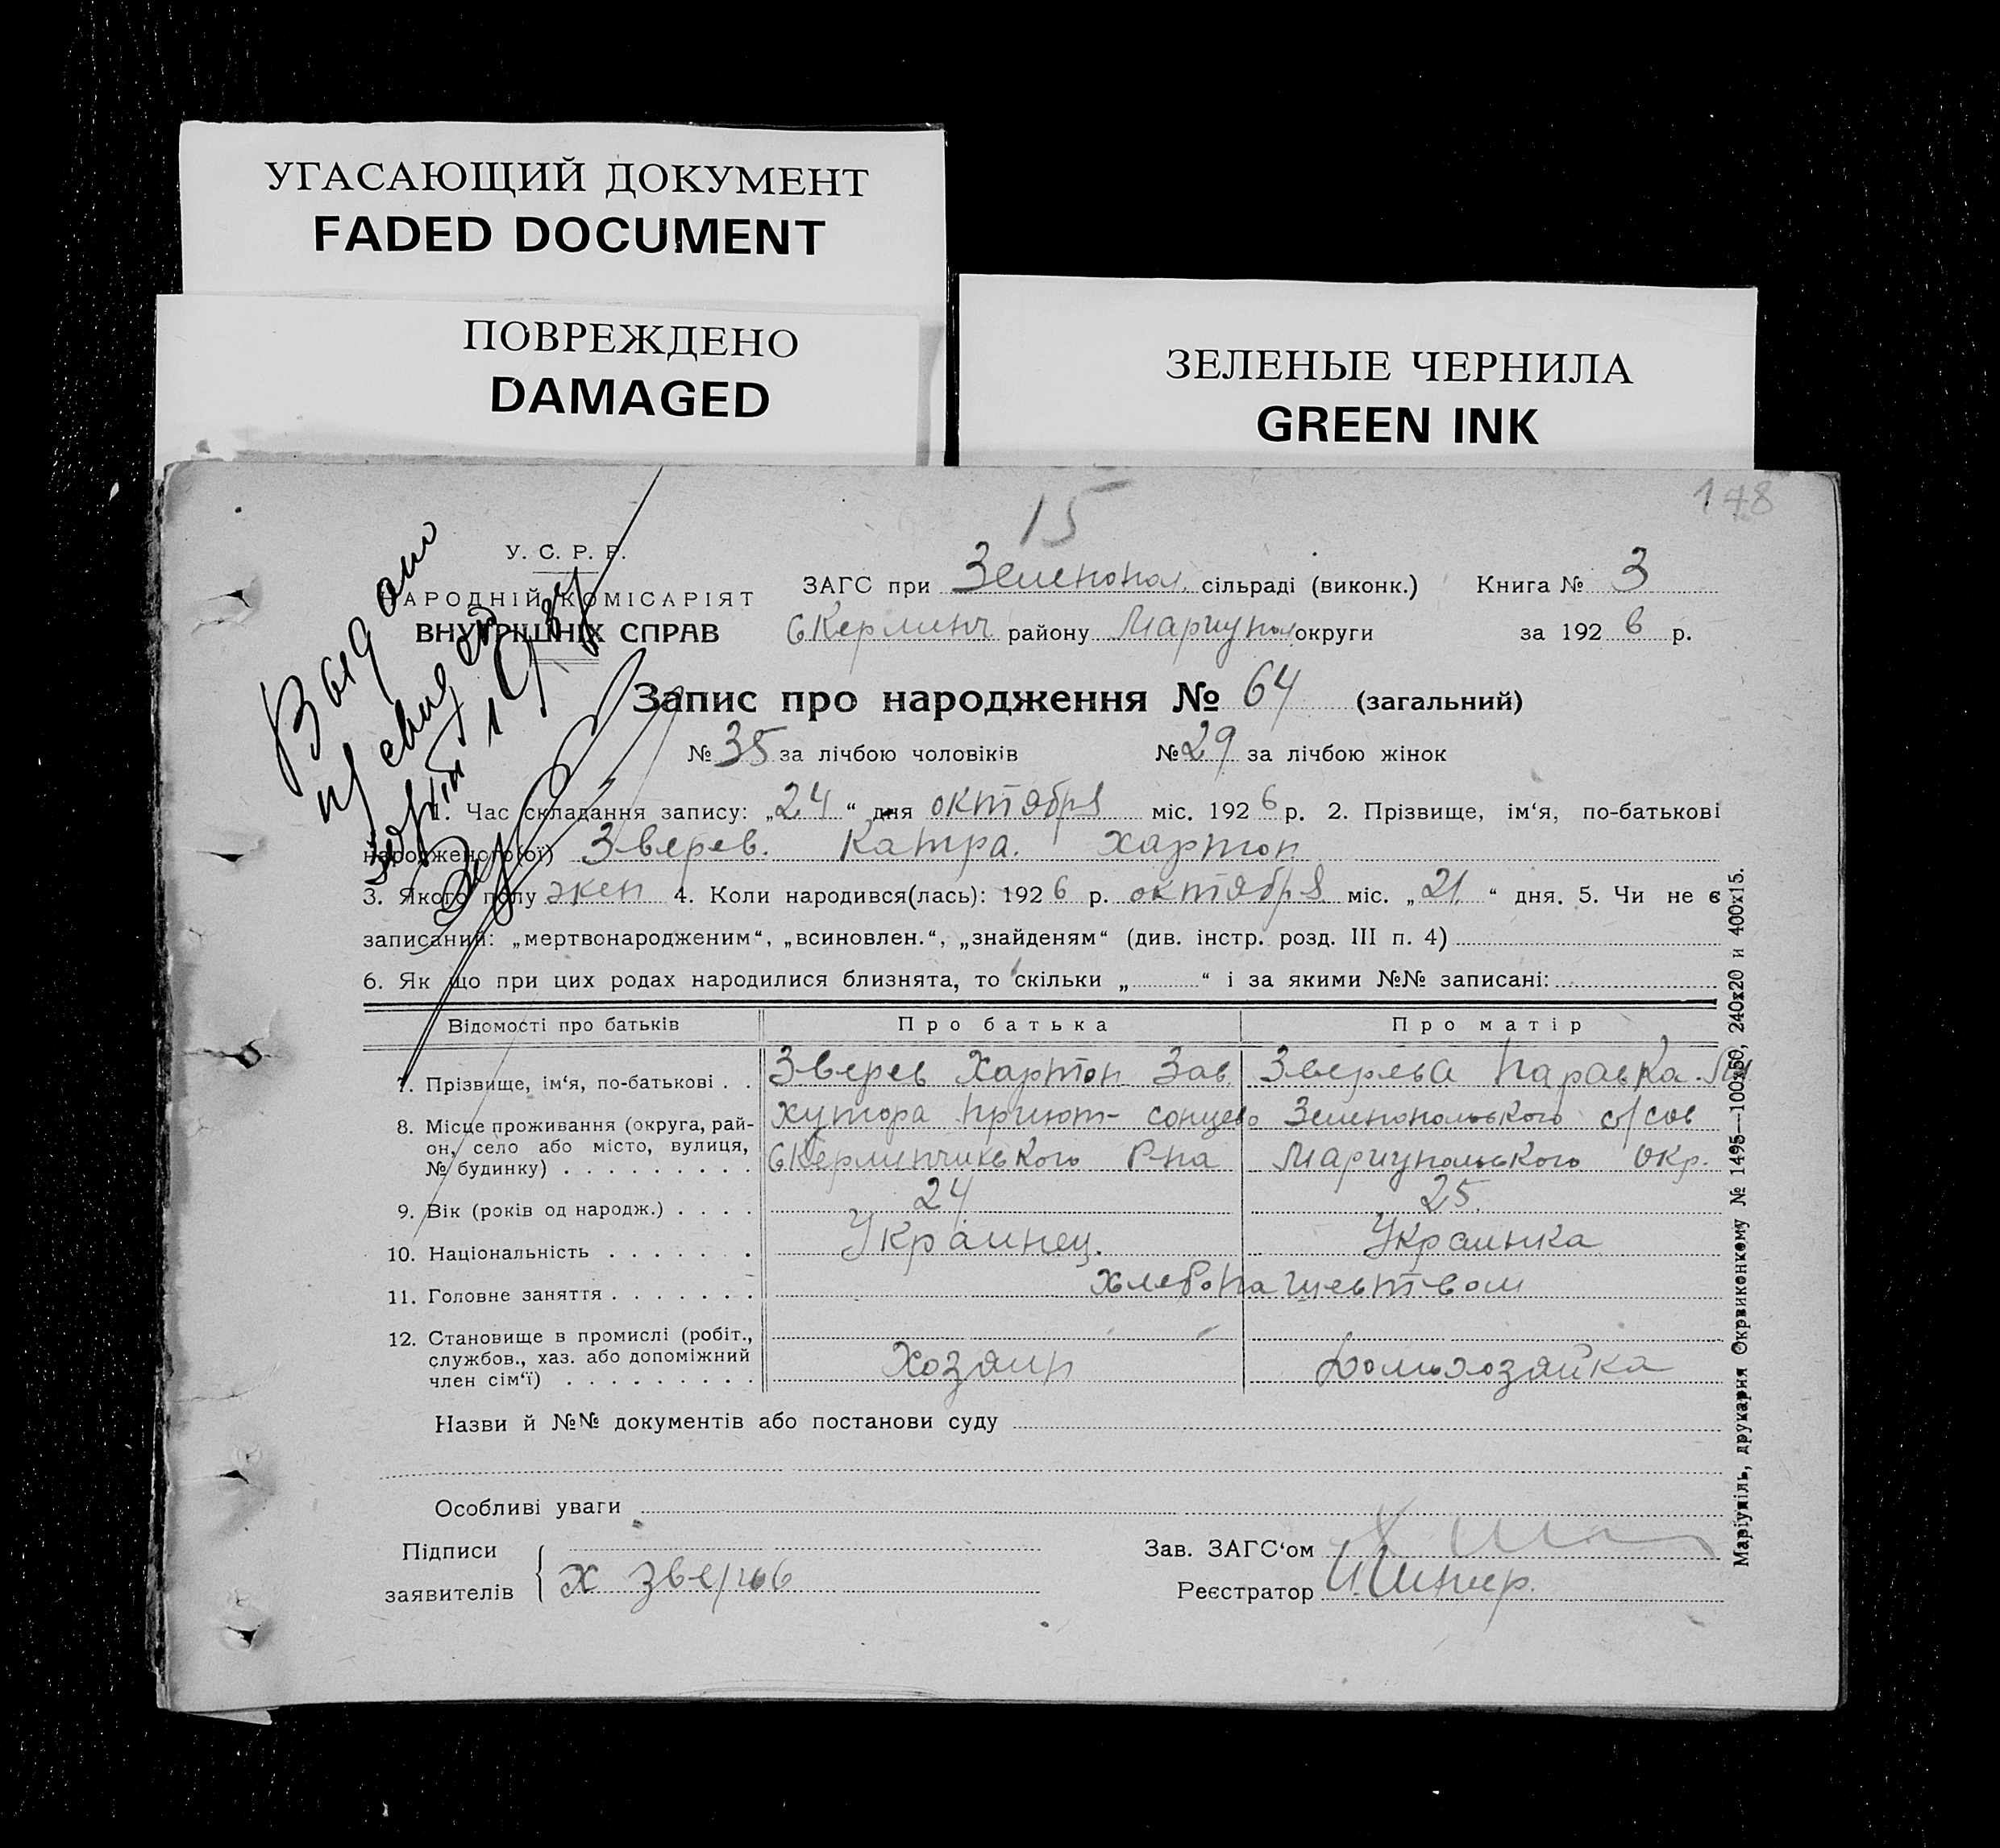 УГАСАЮЩИЙ ДОКУМЕНТ
FADED DOCUMENT
ПОВРЕЖДЕНО
DAMAGED
ЗЕЛЕНЫЕ ЧЕРНИЛА
GREEN INK
15
148
У. С. Р. Р.
НАРОДНІЙ КОМІСАРІЯТ
ВНУТРІШНІХ СПРАВ
Выдано
ЗАГС при Зеленопол. сільраді (виконк.) Книга № 3
СКермину району Мариупол округи за 1926 р.
Запис про народження № 64 (загальний)
№ 35 за лічбою чоловіків № 29 за лічбою жінок
1. Час складання запису: „24“ дня октября міс. 1926 р. 2. Прізвище, ім‘я, по-батькові
народженого(ої) Зверев. Катра. Харитон
3. Якого полу жен 4. Коли народився(лась): 1926 р. октября міс. „21.“ дня. 5. Чи не є
записаний: „мертвонародженим“, „всиновлен.“, „знайденям“ (див. інстр. розд. III п. 4)
6. Як що при цих родах народилися близнята, то скільки „ “ і за якими №№ записані:
Відомості про батьків Про батька Про матір
7. Прізвище, ім‘я, по-батькові . . Зверев Харитон Зав. Зверева Параска
8. Місце проживання (округа, рай-
он, село або місто, вулиця,
№ будинку) . . . . . . . . .
Хутора Приют-сонцево Зеленопольского с/сов
СКерминчикського Р-на Мариупольского Окр.
9. Вік (років од народж.) . . . . 24 25.
10. Національність . . . . . . . Украинец. Украинка
11. Головне заняття . . . . . . . хлебопашеством
12. Становище в промислі (робіт.,
службов., хаз. або допоміжний
член сім‘ї) . . . . . . . . .
Хозяин Домохозяйка
Назви й №№ документів або постанови суду
Особливі уваги
Підписи
заявителів { Х Зверев
Зав. ЗАГС‘ом
Реєстратор
Маріупіль, друкарня Окрвиконкому № 1495—100х50, 240х20 и 400х15.